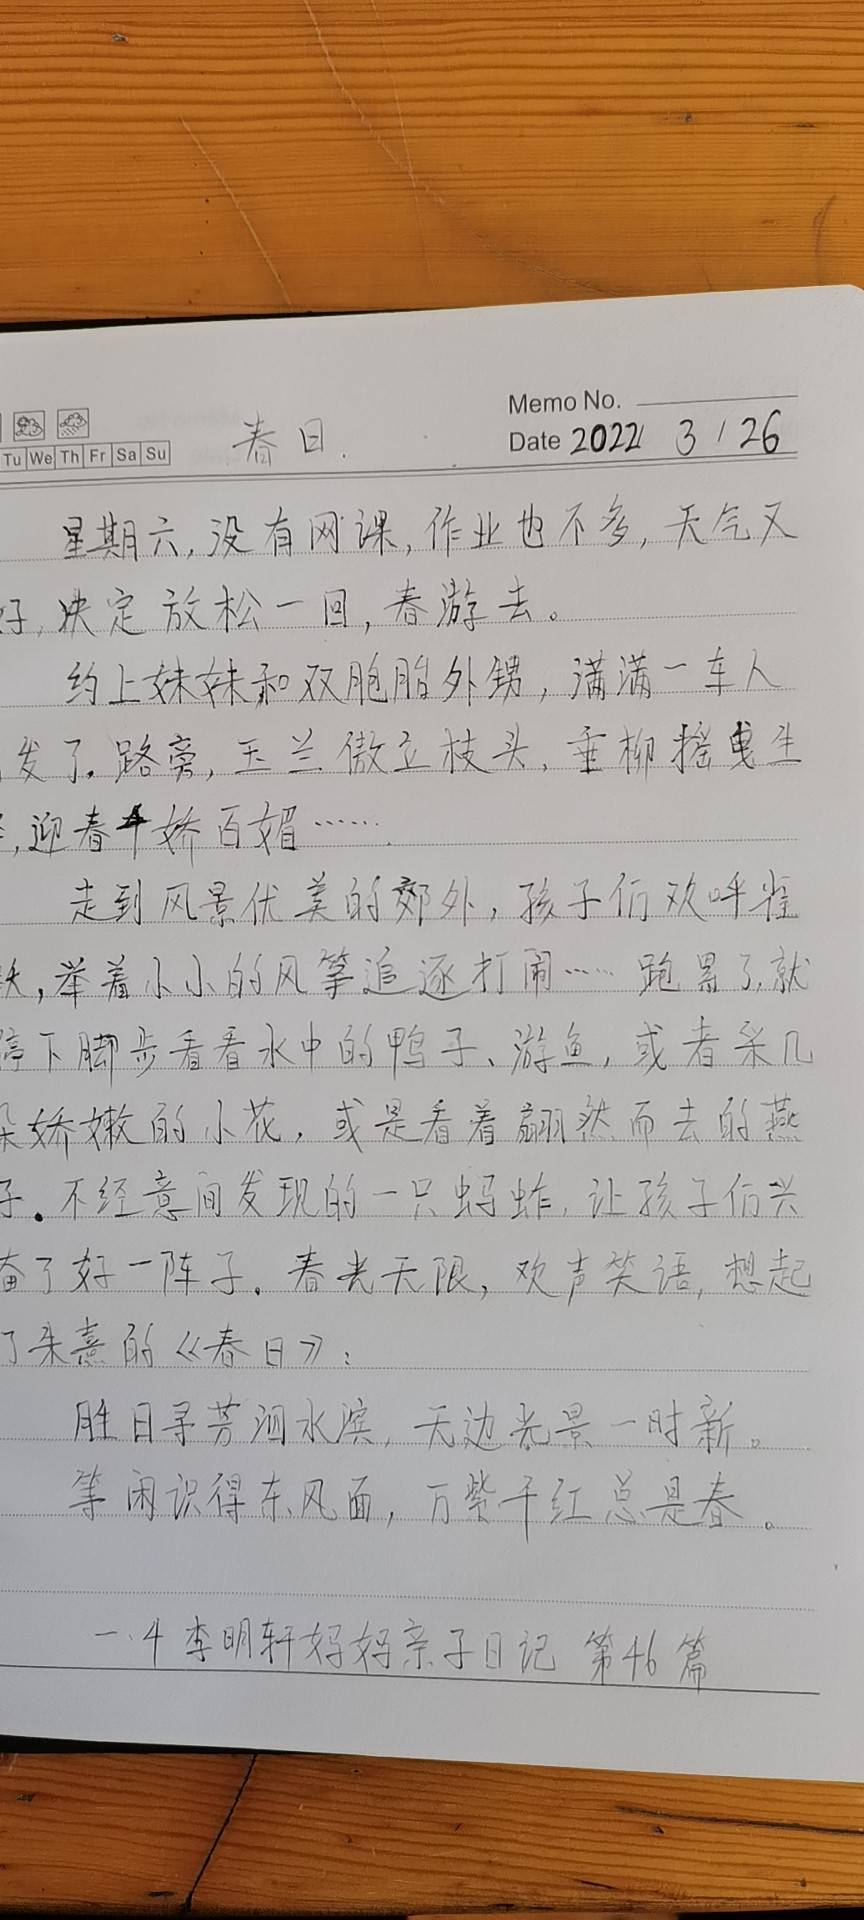 Memo No.
Tu We Th Fr Sa Su 春日. Date 2022 3 / 26
星期六,没有网课,作业也不多,天气又
好,决定放松一回,春游去。
约上妹妹和双胞胎外甥,满满一车人
发了.路旁,玉兰傲立枝头,垂柳摇曳生
,迎春千娇百媚……
走到风景优美的郊外,孩子们欢呼雀
跃,举着小小的风筝追逐打闹……跑累了,就
停下脚步看看水中的鸭子、游鱼,或者采几
朵娇嫩的小花,或是看着翩然而去的燕
子.不经意间发现的一只蚂蚱,让孩子们兴
奋了好一阵子.春光无限,欢声笑语,想起
了朱熹的《春日》:
胜日寻芳泗水滨,无边光景一时新。
等闲识得东风面,万紫千红总是春。
一.4李明轩妈妈亲子日记 第46篇